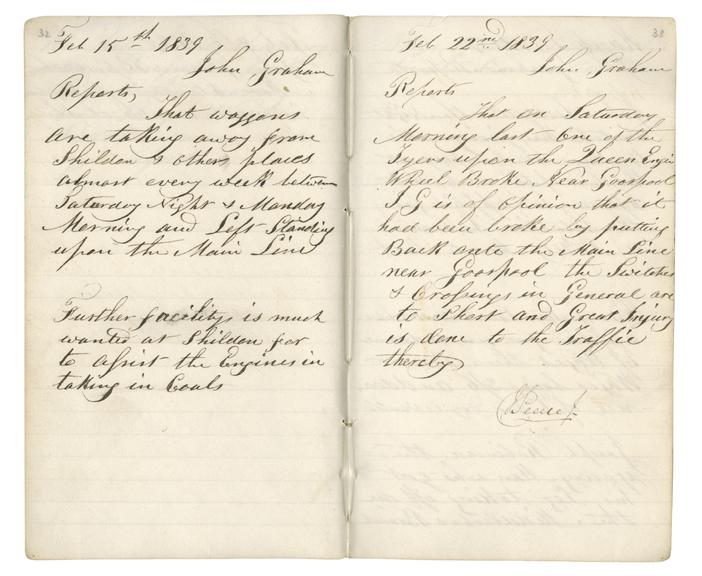 32
Feb 15th 1839
John Graham
Reports,
That waggons
are taking away from
Shildon & others places
almost every week between
Saturday Night & Monday
Morning and Left Standing
upon the Main Line
Further facilitys is much
wanted at Shildon for
to assist the Engines in
taking in Coals
33
Feb 22nd 1839
John Graham
Reports
That on Saturday
Morning last one of the
Tyers upon the Queen Engin
Wheel Broke Near Goospool
J G is of opinion that it
had been broke by putting
Back onto the Main Line
near Goospool the Switches
& Crossings in General are
to Short and Great Injury
is done to the Traffic
thereby